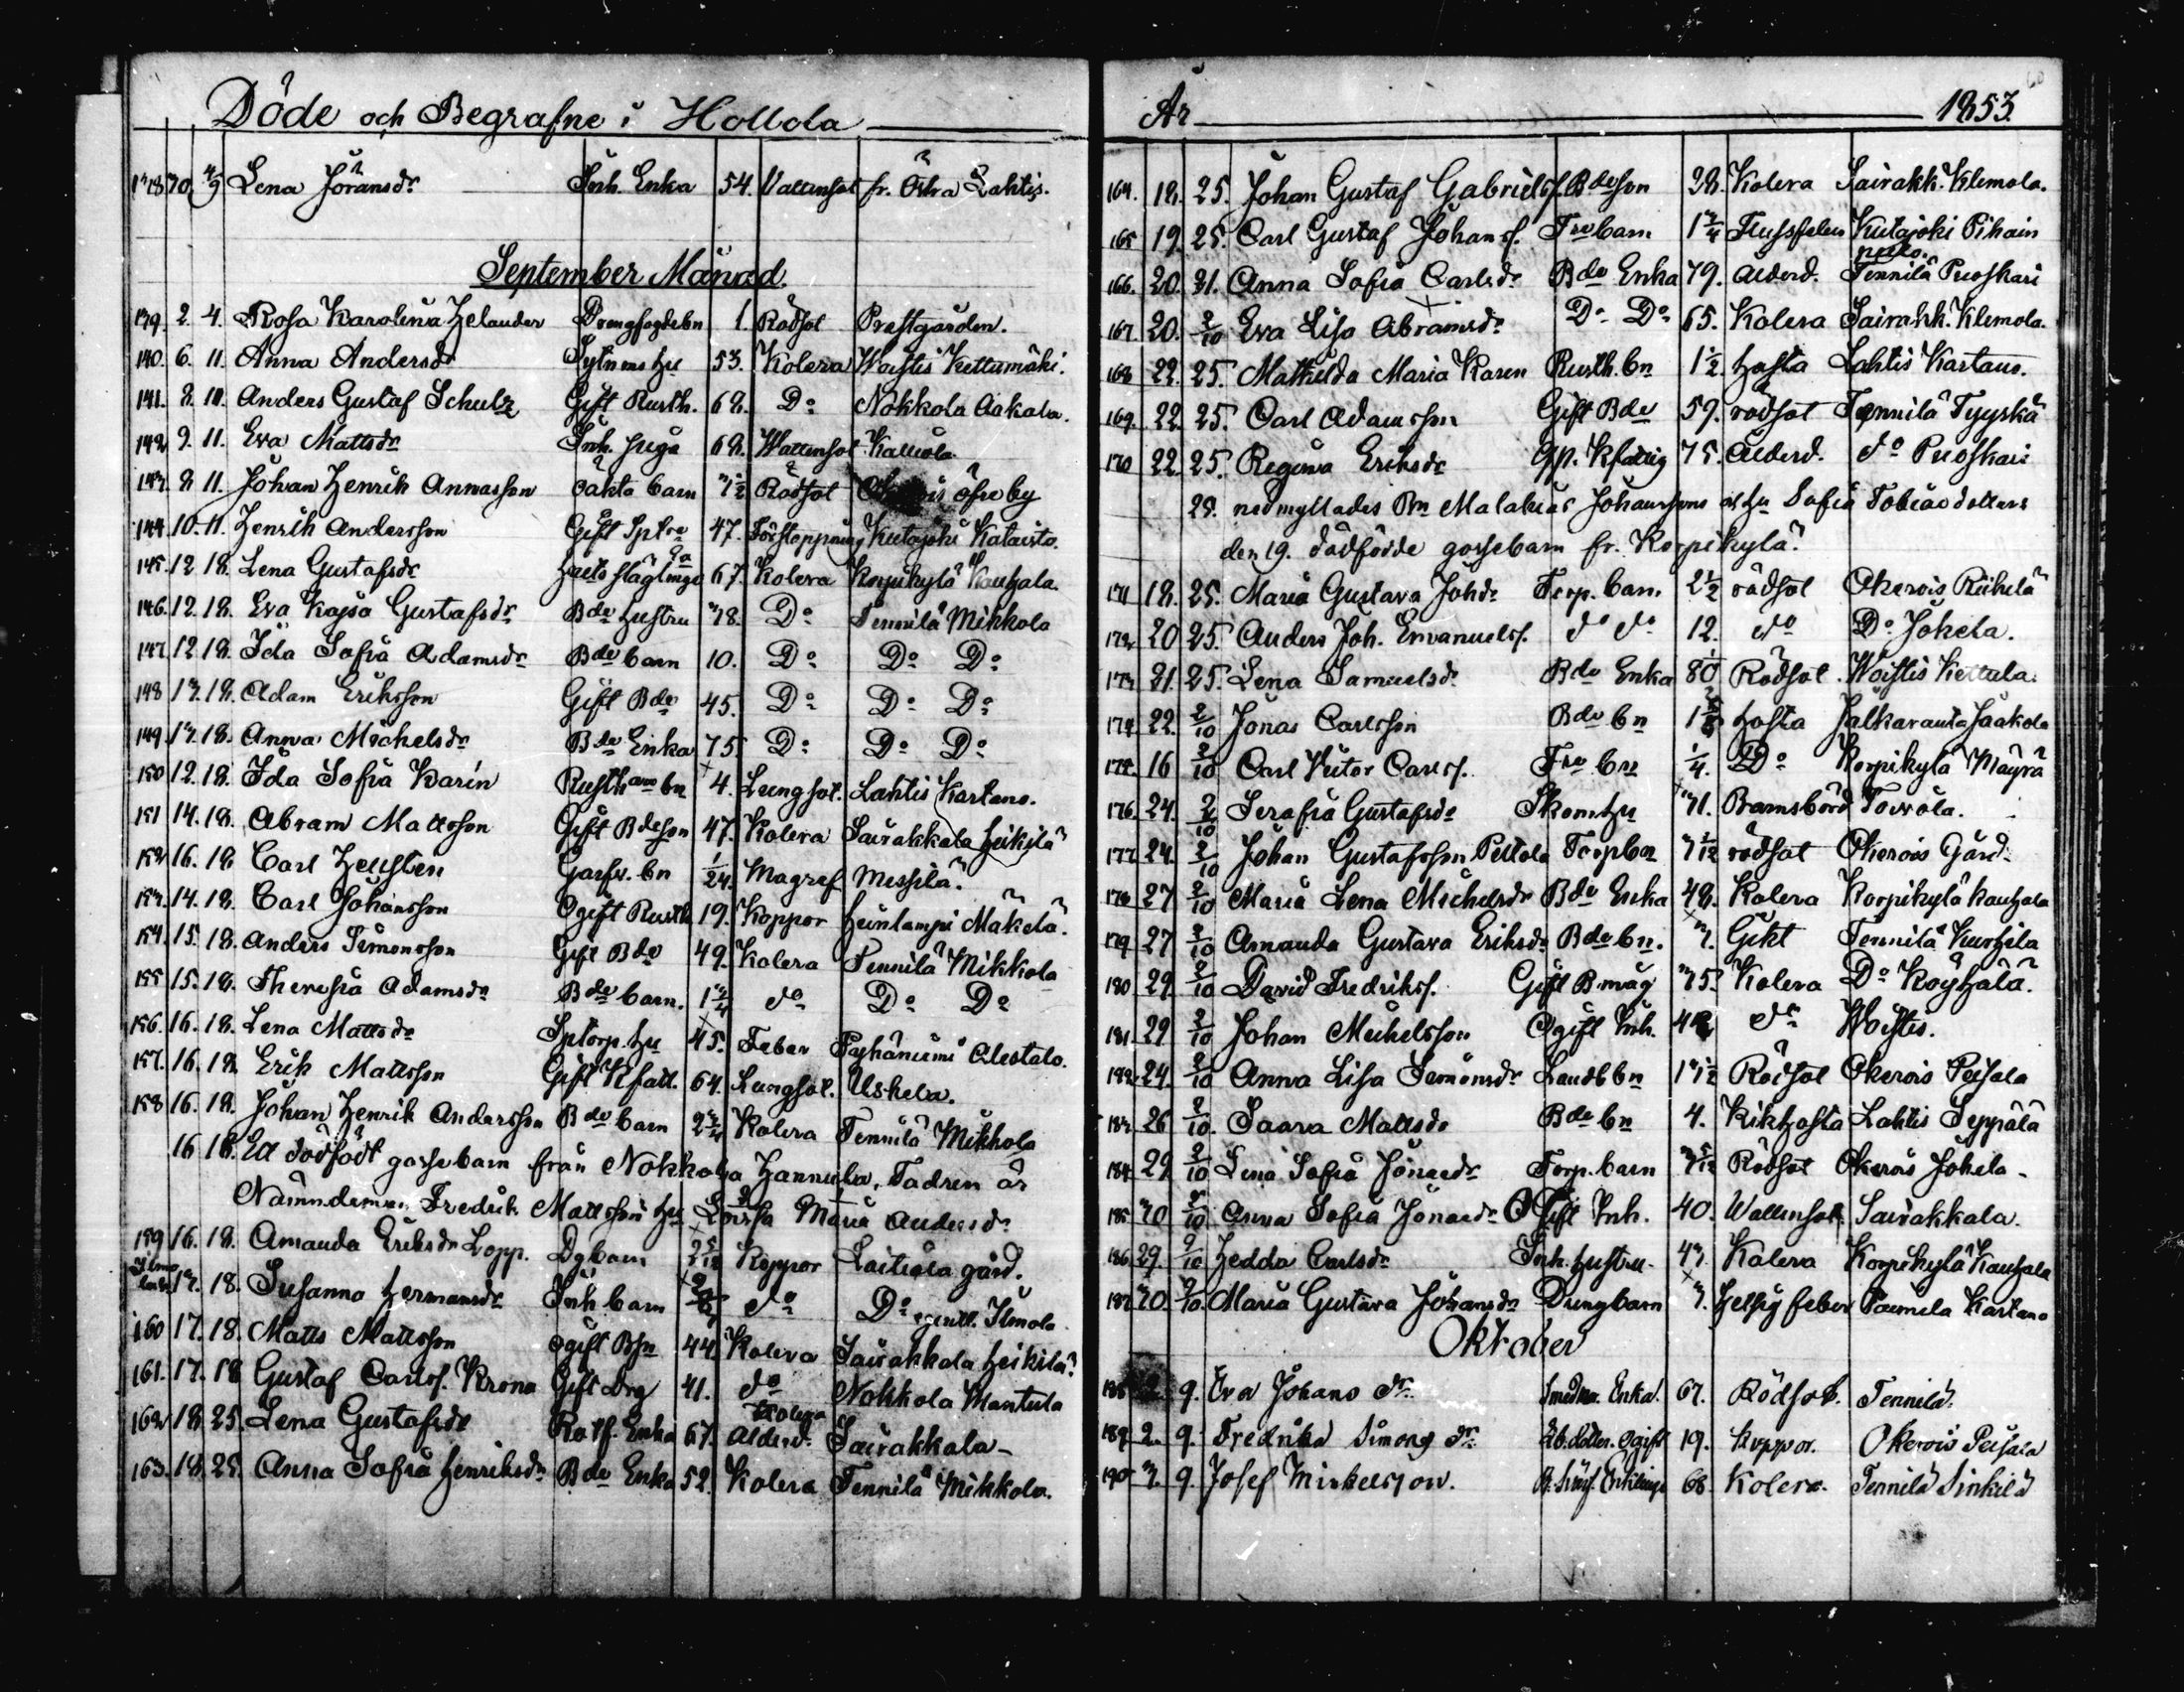 Döde och Begrafne i Hollola
138 30 4/9 Lena Jöransdr Inh. Enka 54. Vattensot fr. Östra Lahtis.
September Månad.
139. 2. 4. Rosa Karolina Helander 1. Rödsot Prestgården.
140. 6. 11. Anna Andersdr hu 53. Kolera Woistis Kettumäki.
141. 8. 11. Anders Gustaf Schulz Gift Rusth. 68. Do Nokkola Aakala.
142 9. 11. Eva Mattsdr Inh. piga 68. Wattensot Kalliola
143. 8 11. Johan Henrik Annasson oäkta barn 3 1/2 Rödsot öfre by
144. 10. 11. Henrik Andersson Gift 47. Förstoppning Kutajoki Kataisto.
145. 12 18. Lena Gustafsdr 67. Kolera Korpikylä Kauhala.
146. 12. 18. Eva Kajsa Gustafsdr Bde hustru 38. Do Tennilä Mikkola
147. 12 18. Ida Sofia Adamsdr Bde barn 10. Do Do Do
148 13. 18. Adam Eriksson Gift Bde 45. Do Do Do
149. 13. 18. Anna Michelsdr Bde Enka 75 Do Do Do
150 12. 18. Ida Sofia Karin Rusth bn 4. Lungsot. Lahtis Kartano.
151 14. 18. Abram Mattsson Gift Bdeson 47. Kolera Sairakkala Heikilä
152 16. 18. Carl Hellsten Garfv. bn 1/24. Magref Messilä.
153. 14. 18. Carl Johansson Ogift Rusth 19. Koppor Heinlampi Mäkelä.
154. 15. 18. Anders Simonsson Gift Bde 49. Kolera Tennilä Mikkola
155 15. 18. Theresia Adamsdr Bde barn. 1 3/4 do Do Do
156. 16. 18. Lena Mattsdr Sptorp. hu 45. Feber Pyhäniemi Alestalo.
157. 16. 18. Erik Mattsson Gift Kfatt. 64. Lungsot. Uskela.
158 16. 18. Johan Henrik Andersson Bde barn 2 3/4 Kolera Tennilä Mikkola
16 18. Ett dödfödt gossebarn från Nokkola Hannula, Fadren är
Nämndeman Fredrik Mattsson hu Lovisa Maria Andersdr
159 16. 18. Amanda Eriksdr Lopp. Dgbarn Koppor Laitiala gård.
13. 18. Susanna Hermansdr Inh barn do Do egentl. Ilmola
160 17. 18. Matts Mattsson ogift Bsn 44. Kolera Sairakkala Heikilä
161. 17. 18 Gustaf Carlss. Krona Gift Drg 41. do Nokkola Mantula
162 18 25. Lena Gustafsdr Enka 67. Kolera Ålderd. Sairakkala
163. 18. 25. Anna Sofia Henriksdr Bde Enka 52. Kolera Tennilä Mikkola.
År 1853.
164. 18. 25. Johan Gustaf Gabrielss. Bdeson 28. Kolera Sairakk. Klemola.
165 19. 25. Carl Gustaf Johanss. Trebarn 1 3/4 Kutajoki Pihain
166. 20. 21. Anna Sofia Carlsdr Bde Enka 79. Ålderd. Tennilä Puoskari
167. 20. 2/10 Eva Lisa Abramsdr Do Do 65. Kolera Sairakk. Klemola.
168 22. 25. Mathilda Maria Karen Rusth. bn 1 1/2. hosta Lahtis Kartano.
169. 22. 25. Carl Adamsson Gift Bde 59. rödsot Tennilä Tyyskä
170 22. 25. Regina Eriksdr Kfattig 75. Ålderd. do Puoskari
25. nedmyllades Bn Malakias Johanssons hu Sofia Tobiasdotters
den 19. dödfödde gossebarn fr. Korpikylä.
171 18. 25. Maria Gustava Johdr Torp. barn. 2 1/2 rödsot Okerois Riihelä
172 20 25. Anders Joh. Emanuelss. do do 12. do Do Jokela.
173 21. 25. Lena Samuelsdr Bde Enka 80 Rödsot. Woistis Kettula.
174 22. 2/10 Jonas Carlsson Bde bn hosta Jalkaranta Jaakola
175. 16 2/10 Carl Victor Carlss. Tre. bn 1/4. Do Korpikylä Mäyrä
176. 24. 2/10 Serafia Gustafsdr Skom.hu 31. Barnsbörd Toivola.
177. 24. 2/10 Johan Gustafsson Peltola Torpbn rödsot Okerois Gård.
178 27 2/10 Maria Lena Michelsdr Bde Enka 48. Kolera Korpikylä Kauhala
179 27 2/10 Amanda Gustava Eriksdr Bde bn. 3. Gikt Tennilä Kurhila
180 29. 2/10 David Fredrikss. Gift Bmåg 35. Kolera Do Köyhälä.
181. 29 2/10 Johan Michelsson Ogift Inh. do Woistis.
182 24. 2/10 Anna Lisa Simonsdr Landb bn Rödsot Okerois Peisala
183 26 2/10. Saara Mattsdr Bde bn 4. Kikhosta Lahtis Seppälä
184 29 2/10 Lena Sofia Jonaedr Torp. barn Rödsot Okerois Jokela
185 30 Anna Sofia Jonaedr Ogift Inh. 40. Wattensot. Sairakkala.
186 29. 9/10 Hedda Carlsdr Inh. hustru. 43. Kolera Korpikylä Kauhala
187 30 9/10 Maria Gustava Johansdr Drengbarn 3. Hetsig feber Paimela Kartano
Oktober
188 2. 9. Eva Johans dr. Enka. 67. Rödsot. Tennilä.
189 2. 9. Fredrika Simons dr. ogift 19. koppor. Okerois Peisala
190 3. 9. Josef Mickelsson. Enkling 68 Kolera. Tennilä Sinkilä